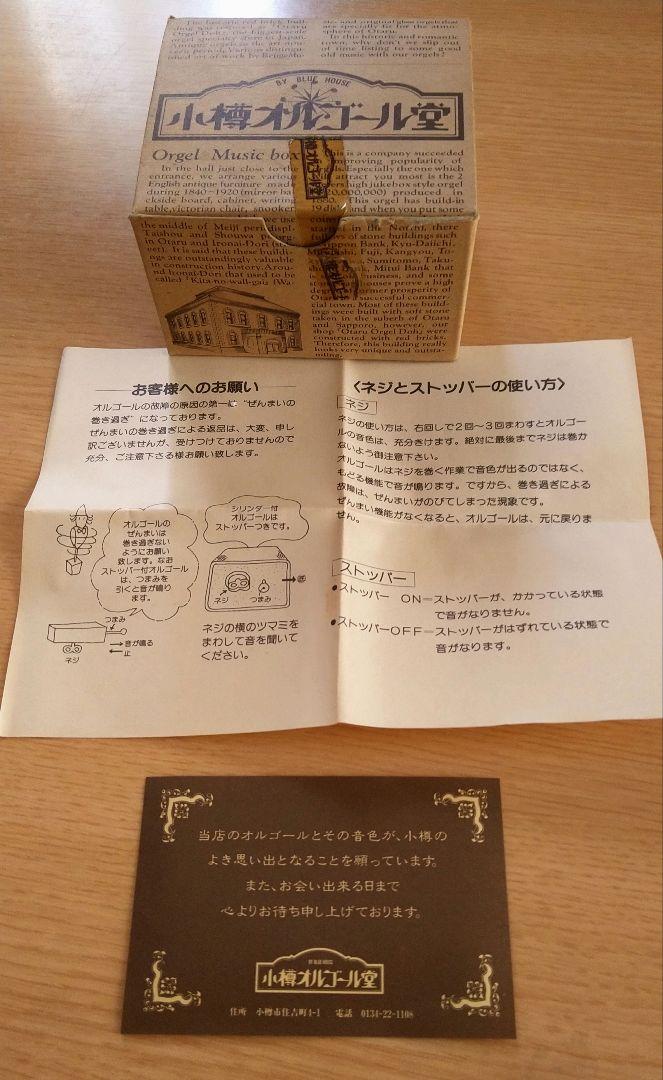 The historic red brick buil-
Orgel Doh, the biggest-scale
orgel specialty store in Japan.
and original glass orgels that
are specially fit for the atmo-
sphere of Otaru.
In this historic and romantic
town, why don't we slip out
of time listening to some good
old music with our orgels?
BY BLUE HOUSE
小樽オルゴール堂
Orgel Music box
In the hall just close to the
entrance, we arrange various
English antique furniture made
during 1840~1920 (mirror ba
ckside board, cabinet, writing
table, victorian chair, snooker
This is a company succeeded
improving popularity of
orgels. Especially the one which
attract you most is the 2
meters high jukebox style orgel
(20,000,000) produced in
1880. This orgel has build-in
19 disk and when you put some
小樽オルゴール堂
the middle of Meiji period
Taishou and Shouwa peri
in Otaru and Ironai-Dori (st
reet). It is said that these buildi-
ngs are outstandingly valuable
in construction history. Arou-
nd Ironai-Dori that used to be
called "Kita-no-wall-gai (Wa
follows of stone buildings such
Nippon Bank, Kyu-Daiichi,
Fuji, Kangyou, To-
Sumitomo, Taku-
Bank, Mitui Bank that
business, and some
houses prove a high
former prosperity of
Otaru as successful commer-
cial town. Most of these build-
ings were built with soft stone
taken in the suberb of Otaru
and Sapporo, however, our
shop "Otaru Orgel Doh" were
constructed with red bricks.
Therefore, this building really
looks very unique and outsta-
nding.
お客様へのお願い
オルゴールの故障の原因の第一は"ぜんまいの
巻き過ぎ"になっております。
ぜんまいの巻き過ぎによる返品は、大変、申し
訳ございませんが、受けつけておりませんので
充分、ご注意下さる様お願い致します。
オルゴールの
ぜんまいは
巻き過ぎない
ようにお願い
致します。なお
ストッパー付オルゴール
は、つまみを
引くと音が鳴り
ます。
つまみ
→音が鳴る
←止
ネジ
シリンダー付
オルゴールは
ストッパーつきです。
ネジ つまみ
ネジの横のツマミを
まわして音を聞いて
ください。
〈ネジとストッパーの使い方〉
ネジ
ネジの使い方は、右回しで2回~3回まわすとオルゴー
ルの音色は、充分きけます。絶対に最後までネジは巻か
ないよう御注意下さい。
オルゴールはネジを巻く作業で音色が出るのではなく、
もどる機能で音が鳴ります。ですから、巻き過ぎによる
故障は、ぜんまいがのびてしまった現象です。
ぜんまい機能がなくなると、オルゴールは、元に戻りま
せん。
ストッパー
•ストッパー ON=ストッパーが、かかっている状態
で音がなりません。
•ストッパーOFF=ストッパーがはずれている状態で
音がなります。
当店のオルゴールとその音色が、小樽の
よき思い出となることを願っています。
また、お会い出来る日まで
心よりお待ち申し上げております。
BY BLUE HOUSE
小樽オルゴール堂
住所 小樽市住吉町4-1 電話 0134-22-1108